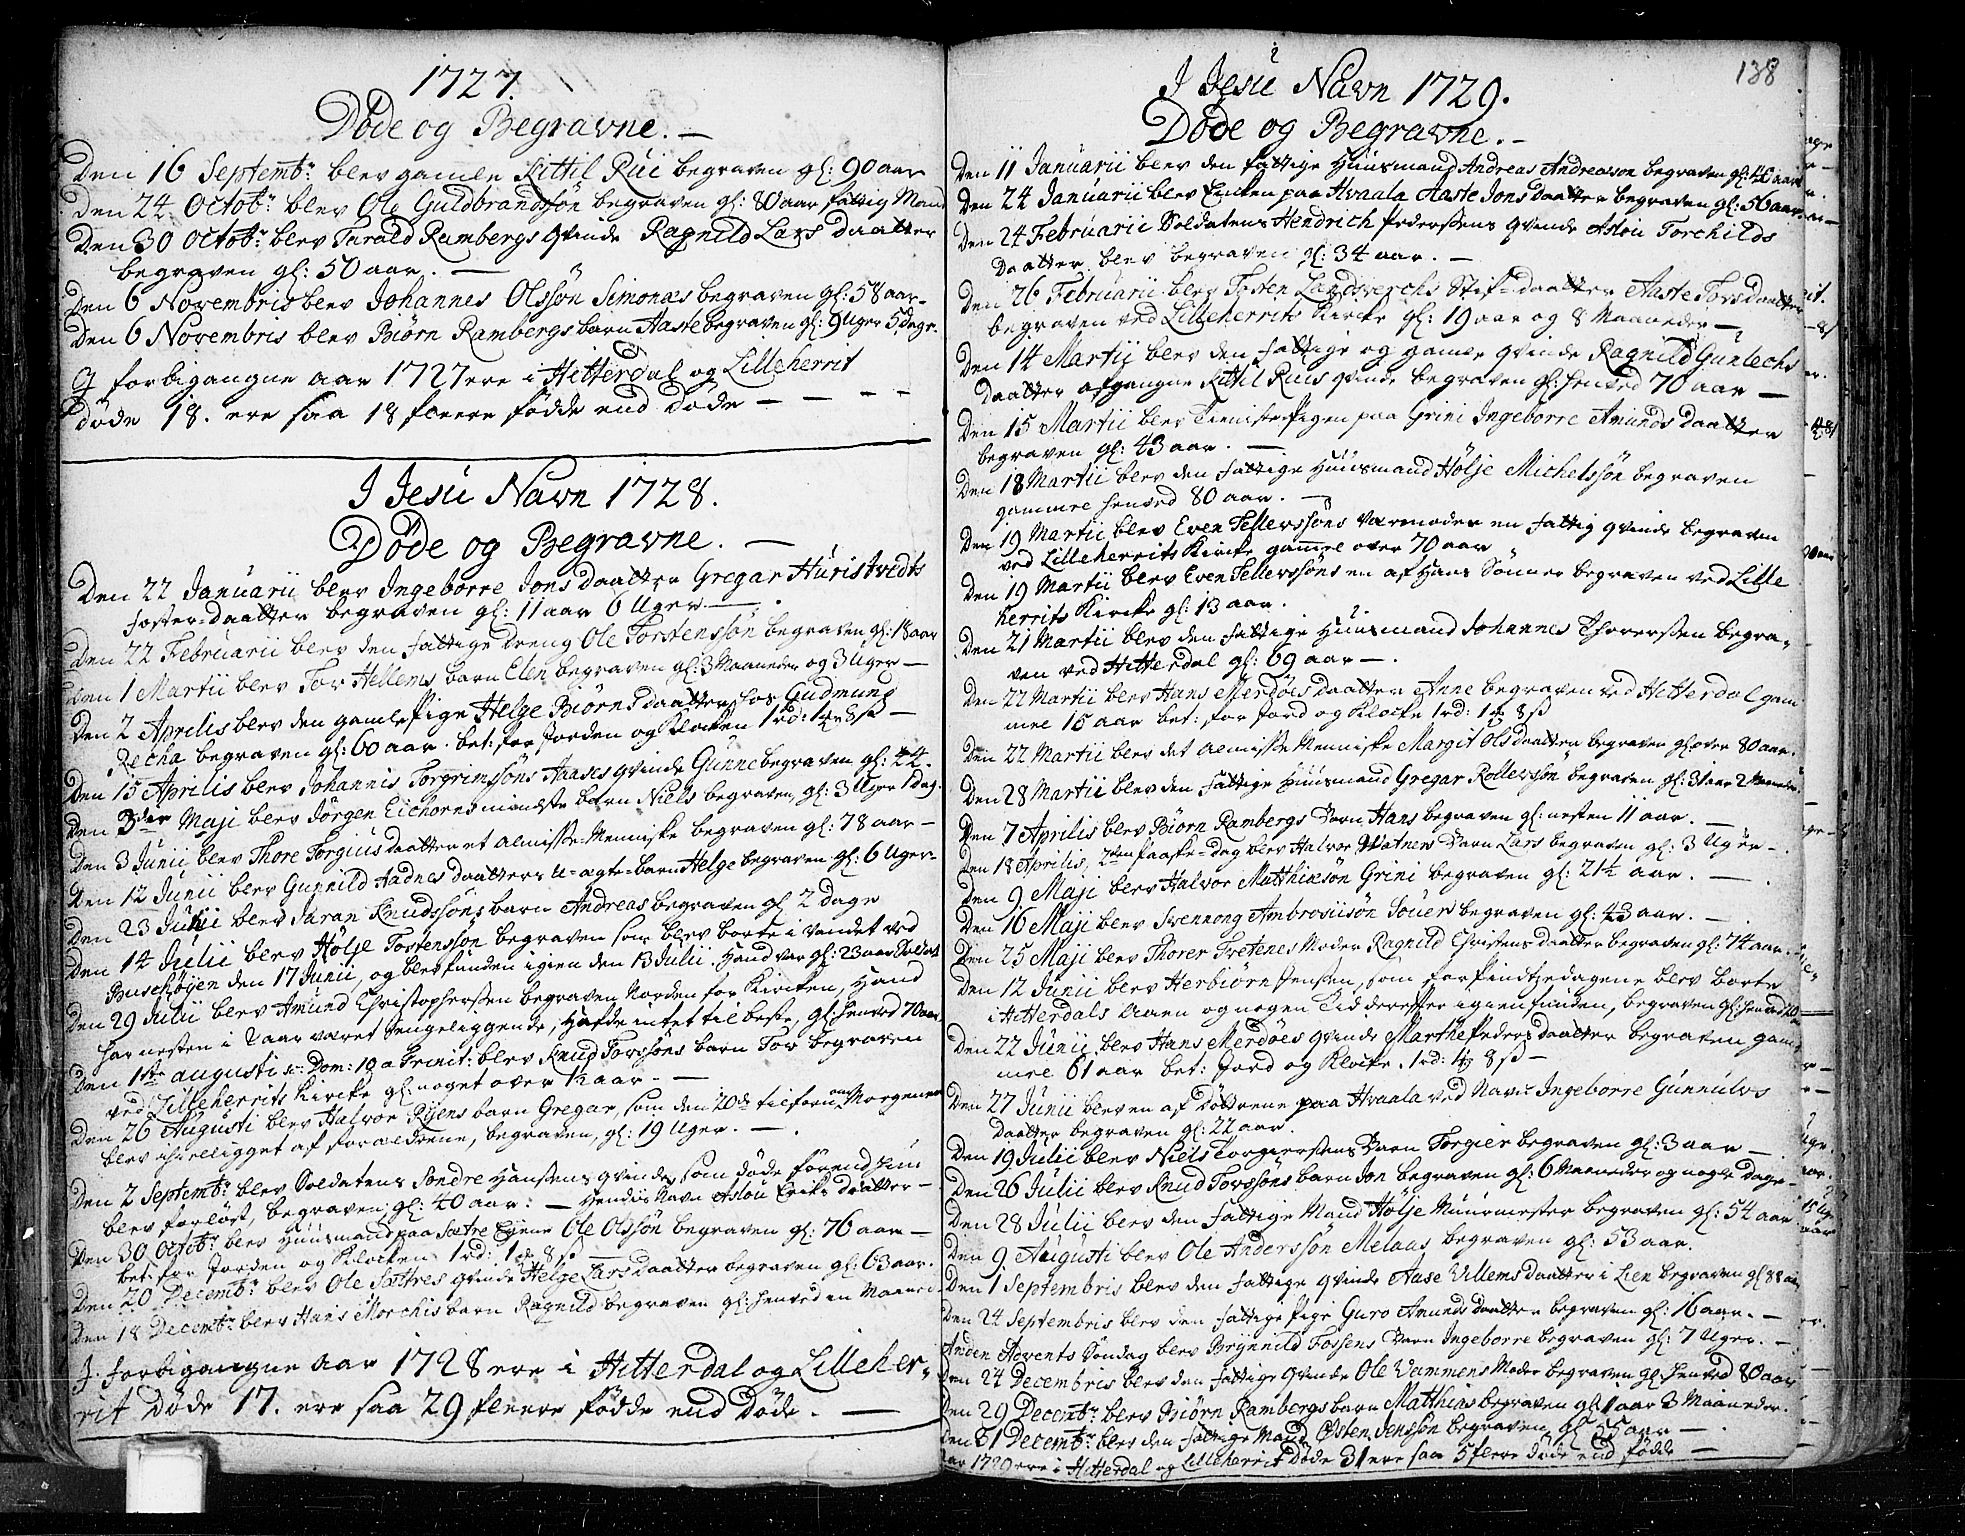 1727.
Døde og Begravne. —
Den 16 Septembr: blev gamle Kittil Rui begraven gl: 90 aar
Den 24 Octobr: blev Ole Guldbrandssøn begraven gl: 80 aar fattig Mand
Den 30 Octobr: blev Tarald Rambergs Qvinde Ragnild Lars daatter
begraven gl: 50 aar. —
Den 6 Novembris blev Johannes Olssøn Simonæs begraven gl: 58 aar—
Den 6 Novembris blev Biørn Rambergs barn Aaste begraven gl: 9 Uger 5 dege.
J forbigangne aar 1727 ere i Hitterdal og Lilleherrit
døde 18. ere saa 18 fleere fødde end døde — — — —
J Jesu Navn 1728.
Døde og Begravne. —
Den 22 Januarii blev Ingeborre Jons daatter Gregar Huristvedts
foster-daatter begraven gl: 11 aar 6 Uger —
Den 22 Februarii blev den fattige dreng Ole Torstenssøn begraven gl: 18 aar
Den 1 Martii blev Tov Hellems barn Elen begraven gl: 3 Maaneder og 3 Uger —
Den 2 Aprilis blev den gamle Pige Helge Biørns daatter hos Gudmund
Recha begraven gl: 60 aar. bet: for Jorden og Klocken 1 rd: 1 8 ß —
Den 15 Aprilis blev Johannis Torgrimssøns Aases Qvinde Gunne begraven gl: 44.
Den 3der Maji blev Jørgen Eichorns mindste barn Niels begraven, gl: 3 Uger 1 Dag.
Den 3 Junii blev Thore Torgius daatter et Almisse-Menniske begraven gl: 78 aar —
Den 12 Junii blev Gunnild Aadnes daatters U-ægte-barn Helge begraven gl: 6 Uger-
Den 23 Julii blev Saran Knudssøns barn Andreas begraven gl 2 dage
Den 14 Julii blev Hølje Tostenssøn begraven som blev borte i vandet ved
Buschøjen den 17 Junii, og blev funden igien den 13 Julii. Hand var gl: 23 aar
Den 29 Julii blev Amund Christophersen begraven Norden for Kircken, Hand
har nesten i 2 aar været sengeliggende, Hafde intet til beste, gl: henved 70 aar
Den 1ste Augusti Dom: 10 a Trinit: blev Knud Torssøns barn Tov begraven
ved Lilleherrits Kircke gl: noget over 1½ aar. —
Den 26 Augusti blev Halvor Ryens barn Gregar, som den 20de tilforn om Morgenen
blev ihielligget af forældrene, begraven, gl: 19 Uger. —
Den 2 Septembr: blev Soldatens Sondre Hansens Qvinde, som døde førend hun
blev forløst, begraven gl: 40 aar: — Hendes Navn Aslou Erichs daatter —
Den 30 Octobr: blev Huusmand paa Sætre Ejene Ole Olssøn begraven gl: 76 aar —
bet: for Jorden og Klocken 1 rd: 1 8 ß —
Den 20 Decembr: blev Ole Sættres Qvinde Helge Lars daatter begraven gl: 63 aar.
Den 18 Decembr: blev Hans Morchis barn Ragnild begraven gl: henved en Maaned
J forbigangne aar 1728 ere i Hitterdal og Lilleher-
rit Døde 17. ere saa 29 fleere fødde end Døde. —
138
J Jesu Navn 1729.
Døde og Begravne. -
Den 11 Januarii blev den fattige Huusmand Andreas Andreasøn begraven gl: 46 aar
Den 24 Januarii blev Encken paa Hvaala Aaste Jons daatter begraven gl: 56 aar.
Den 24 Februarii Soldatens Hendrich Pederssens Qvinde Aslou Torchilds
daatter blev begraven gl: 34 aar. —
Den 26 Februarii blev Tosten Landsverchs Stif-daatter Aaste Torsdaatter
begraven ved Lilleherrits Kircke gl: 19 aar og 8 Maaneder —
Den 14 Martij blev den fattige og gamle Qvinde Ragnild Gunlechs
daatter afgangne Kittil Ruis Qvinde begraven gl: henved 70 aar —
Den 15 Martii blev Tieniste Pigen paa Grini Ingeborre Amunds daatter
begraven gl: 43 aar. —
Den 18 Martii blev den fattige Huusmand Hølje Michelssøn begraven
gammel henved 80 aar. —
Den 19 Martii blev Even Tellevssøns Varmoder en fattig Qvinde begraven
ved Lilleherrits Kircke gammel over 70 aar
Den 19 Martii blev Even Tellevssøns en af Hans Sønner begraven ved Lille
herrits Kircke gl: 13 aar.
Den 21 Martii blev den fattige Huusmand Johannes Thoressen begra-
ven ved Hitterdal gl: 69 aar —.
Den 22 Martii blev Hans Merdøes daatter Anne begraven ved Hitterdal gam
mel 15 aar bet: for Jord og Klocke 1 rd: 1 8 ß
Den 22 Martii blev det Almisse Menniske Margit Olsdaatter begraven gl: over 80 aar.
Den 28 Martii blev den fattige Huusmand Gregar Rollevssøn begraven gl: 31 aar 2 Maaneder
Den 7 Aprilis blev Biørn Rambergs Barn Hans begraven gl: nesten 11 aar. —
Den 18 Aprilis, 2den Paaske-dag blev Halvor Watners Barn Lars begraven gl: 3 Uger —.
Den 9 Maji blev Halvor Matthiæsøn Grini begraven gl: 21½ aar. —
Den 16 Maji blev Svennong Ambrosiisøn Souer begraven gl: 43 aar. —
Den 25 Maji blev Thorer Tretenes Moder Ragnild Christens daatter begraven gl: 74 aar.
Den 12 Junii blev Herbiørn Jensen, som for Pindtzedagene blev borte
i Hitterdals Aaen og nogen Tid derefter igien funden, begraven gl: henved 20
Den 22 Junii blev Hans Merdøes Qvinde Marthe Peders daatter begraven gam
mel 61 aar bet: Jord og Klocke. 1 rd: 1 8 ß —
Den 27 Junii blev en af Døttrene paa Hvaala ved Navn Ingeborre Gunnulvs
daatter begraven gl: 22 aar.
Den 19 Julii blev Niels Torgiersens Barn Torgier begraven gl: 3 aar —
Den 26 Julii blev Knud Torssøns barn Jon begraven gl: 6 Maaneder og nogle dage —
Den 28 Julii blev den fattige Mand Hølje Muurmester begraven gl: 54 aar
Den 9 Augusti blev Ole Anderssøn Melaas begraven gl: 53 aar.
Den 1 Septembris blev den fattige Qvinde Aase Villems daatter i Lien begraven gl 88 aar
Den 24 Septembris blev den fattige Pige Guro Amunds daatter begraven gl: 16 aar. —
Anden Advents Søndag blev Brynnild Fossens Barn Ingeborre begraven gl: 7 Uger. —
Den 24 Decembris blev den fattige Qvinde Ole Vammens Moder begraven gl: henved 80 aar
Den 29 Decembr: blev Biørn Rambergs barn Matthias begraven gl 1 aar 3 Maaneder.
Den 31 Decembr: blev den fattige Mand Østen Jenssøn begraven gl 55 aar —
aar 1729 ere i Hitterdal og Lilleherrit Døde 31 ere saa 5 fleere døde end fødde —